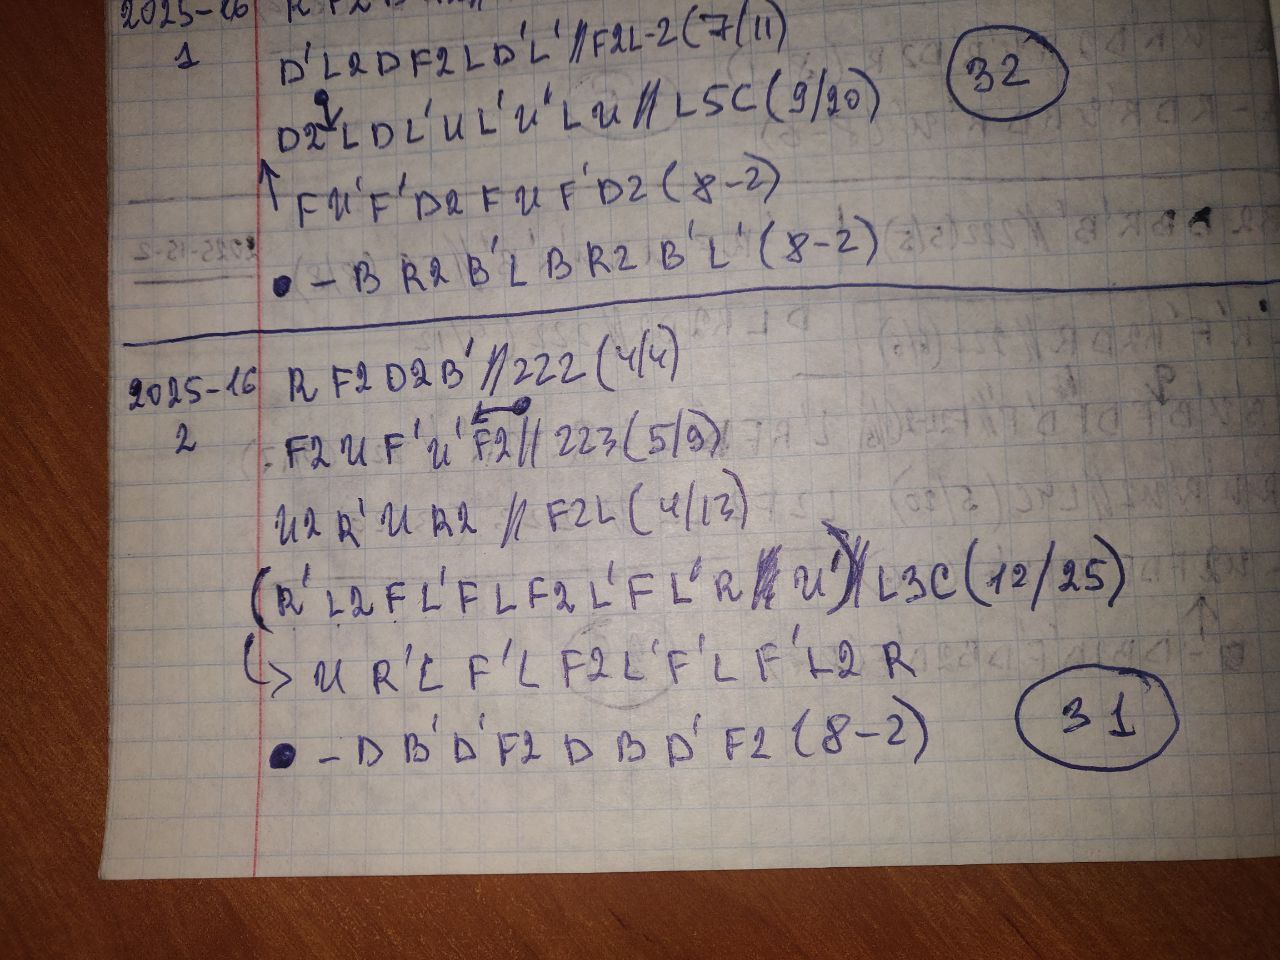 2025-16 R F2 D
1 D' L2 D F2 L D' L' // F2L-2 (7/11)
D2 L D L' U L' U' L U // L5C (9/20)
32
F U' F' D2 F U F' D2 (8-2)
● - B R2 B' L B R2 B' L' (8-2)
2025-16 R F2 D2 B' // 222 (4/4)
2 F2 U F' U' F2 // 223 (5/9)
U2 R' U R2 // F2L (4/13)
(R' L2 F L' F L F2 L' F L' R U') // L3C (12/25)
↳ U R' L F' L F2 L' F' L F' L2 R
● - D B' D' F2 D B D' F2 (8-2)
31